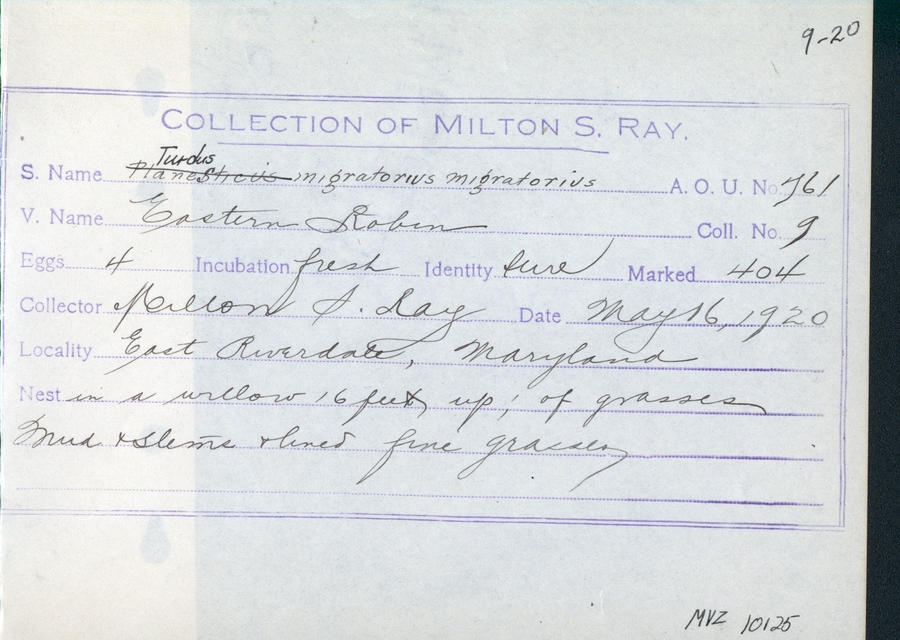 9-20
COLLECTION OF MILTON S. RAY.
Turdus
S. Name Planesticus migratorius migratorius A. O. U. No. 761
V. Name Eastern Robin Coll. No. 9
Eggs 4 Incubation fresh Identity sure Marked 404
Collector Milton S. Ray Date May 16, 1920
Locality East Riverdale, Maryland
Nest in a willow 16 feet up; of grasses
Mud & stems & lined fine grasses
MVZ 10125